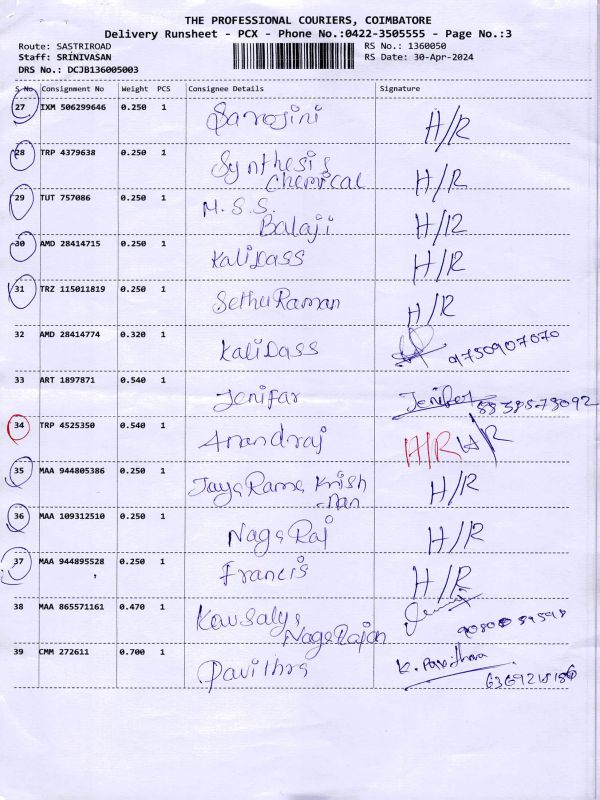 THE PROFESSIONAL COURIERS, COIMBATORE
Delivery Runsheet - PCX - Phone No.:0422-3505555 - Page No.:3
Route: SASTRIROAD RS No.: 1360050
Staff: SRINIVASAN RS Date: 30-Apr-2024
DRS No.: DCJB136005003
S No Consignment No Weight PCS Consignee Details Signature
27 IXM 506299646 0.250 1 Sarojini H/R
28 TRP 4379638 0.250 1 Synthesis
Chemical H/R
29 TUT 757086 0.250 1 M.S.S.
Balaji H/R
30 AMD 28414715 0.250 1 KaliDass H/R
31 TRZ 115011819 0.250 1 SethuRaman H/R
32 AMD 28414774 0.320 1 KaliDass 9750907070
33 ART 1897871 0.540 1 Jenifar Jenifer 8838573092
34 TRP 4525350 0.540 1 Anandraj H/R H/R
35 MAA 944805386 0.250 1 JayaRama Krish
-nan H/R
36 MAA 109312510 0.250 1 NagaRaj H/R
37 MAA 944895528 0.250 1 Francis H/R
38 MAA 865571161 0.470 1 Kausalya
NagaRajan
39 CMM 272611 0.700 1 Pavithra K. Pavithra